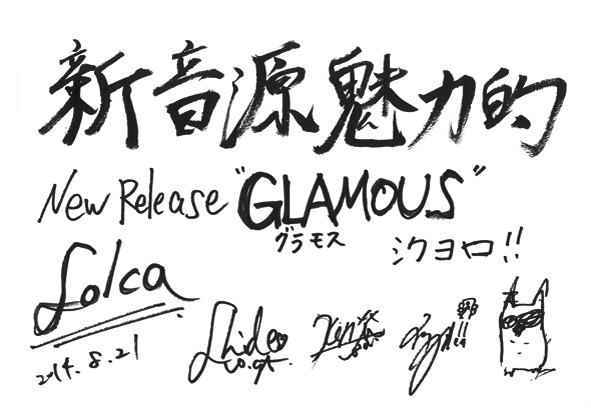 新音源魅力的
New Release "GLAMOUS"
グラモス
シクヨロ!!
Lolca
2014.8.21